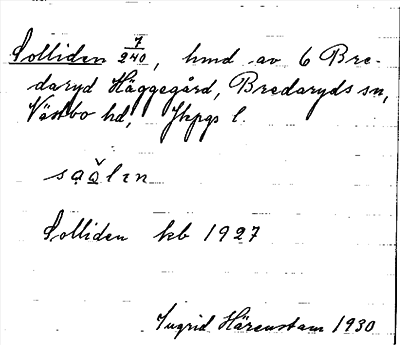 Solliden 7/240, hmd av 6 Bre-
daryd Häggegård, Bredaryds sn,
Västbo hd, Jkpgs l.
Solliden kb 1927
Ingrid Härenstam 1930